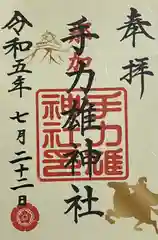 奉拝
手力雄神社
令和五年七月二十二日
手力雄
神社印